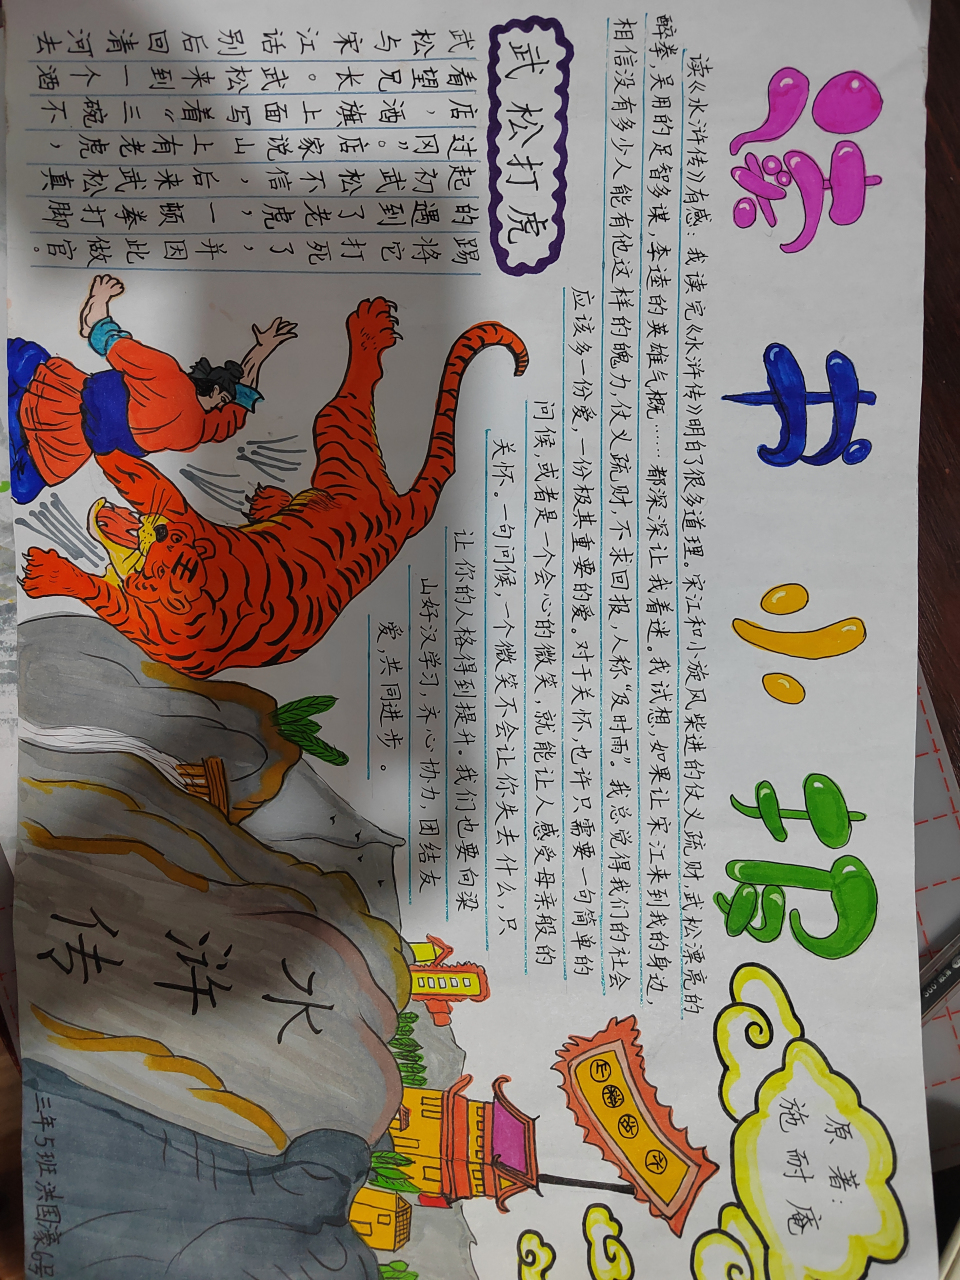 读书小报
原著:
施耐庵
读《水浒传》有感: 我读完《水浒传》明白了很多道理。宋江和小旋风柴进的仗义疏财,武松漂亮的
醉拳,吴用的足智多谋,李逵的英雄气概……都深深让我着迷。我试想,如果让宋江来到我的身边,
相信没有多少人能有他这样的魄力,仗义疏财,不求回报,人称“及时雨”。我总觉得我们的社会
应该多一份爱,一份极其重要的爱。对于关怀,也许只需要一句简单的
问候,或者是一个会心的微笑,就能让人感受母亲般的
关怀。一句问候,一个微笑不会让你失去什么,只
让你的人格得到提升。我们也要向梁
山好汉学习,齐心协力,团结友
爱,共同进步。
武松打虎
武松与宋江话别后回清河去
看望兄长。武松来到一个酒
店,酒旗上面写着《三碗不
过冈》。店家说山上有老虎,
起初武松不信,后来武松真
的遇到了老虎,一顿拳打脚
踢将它打死了,并因此做官。
王
水浒传
三年5班洪国濠6号